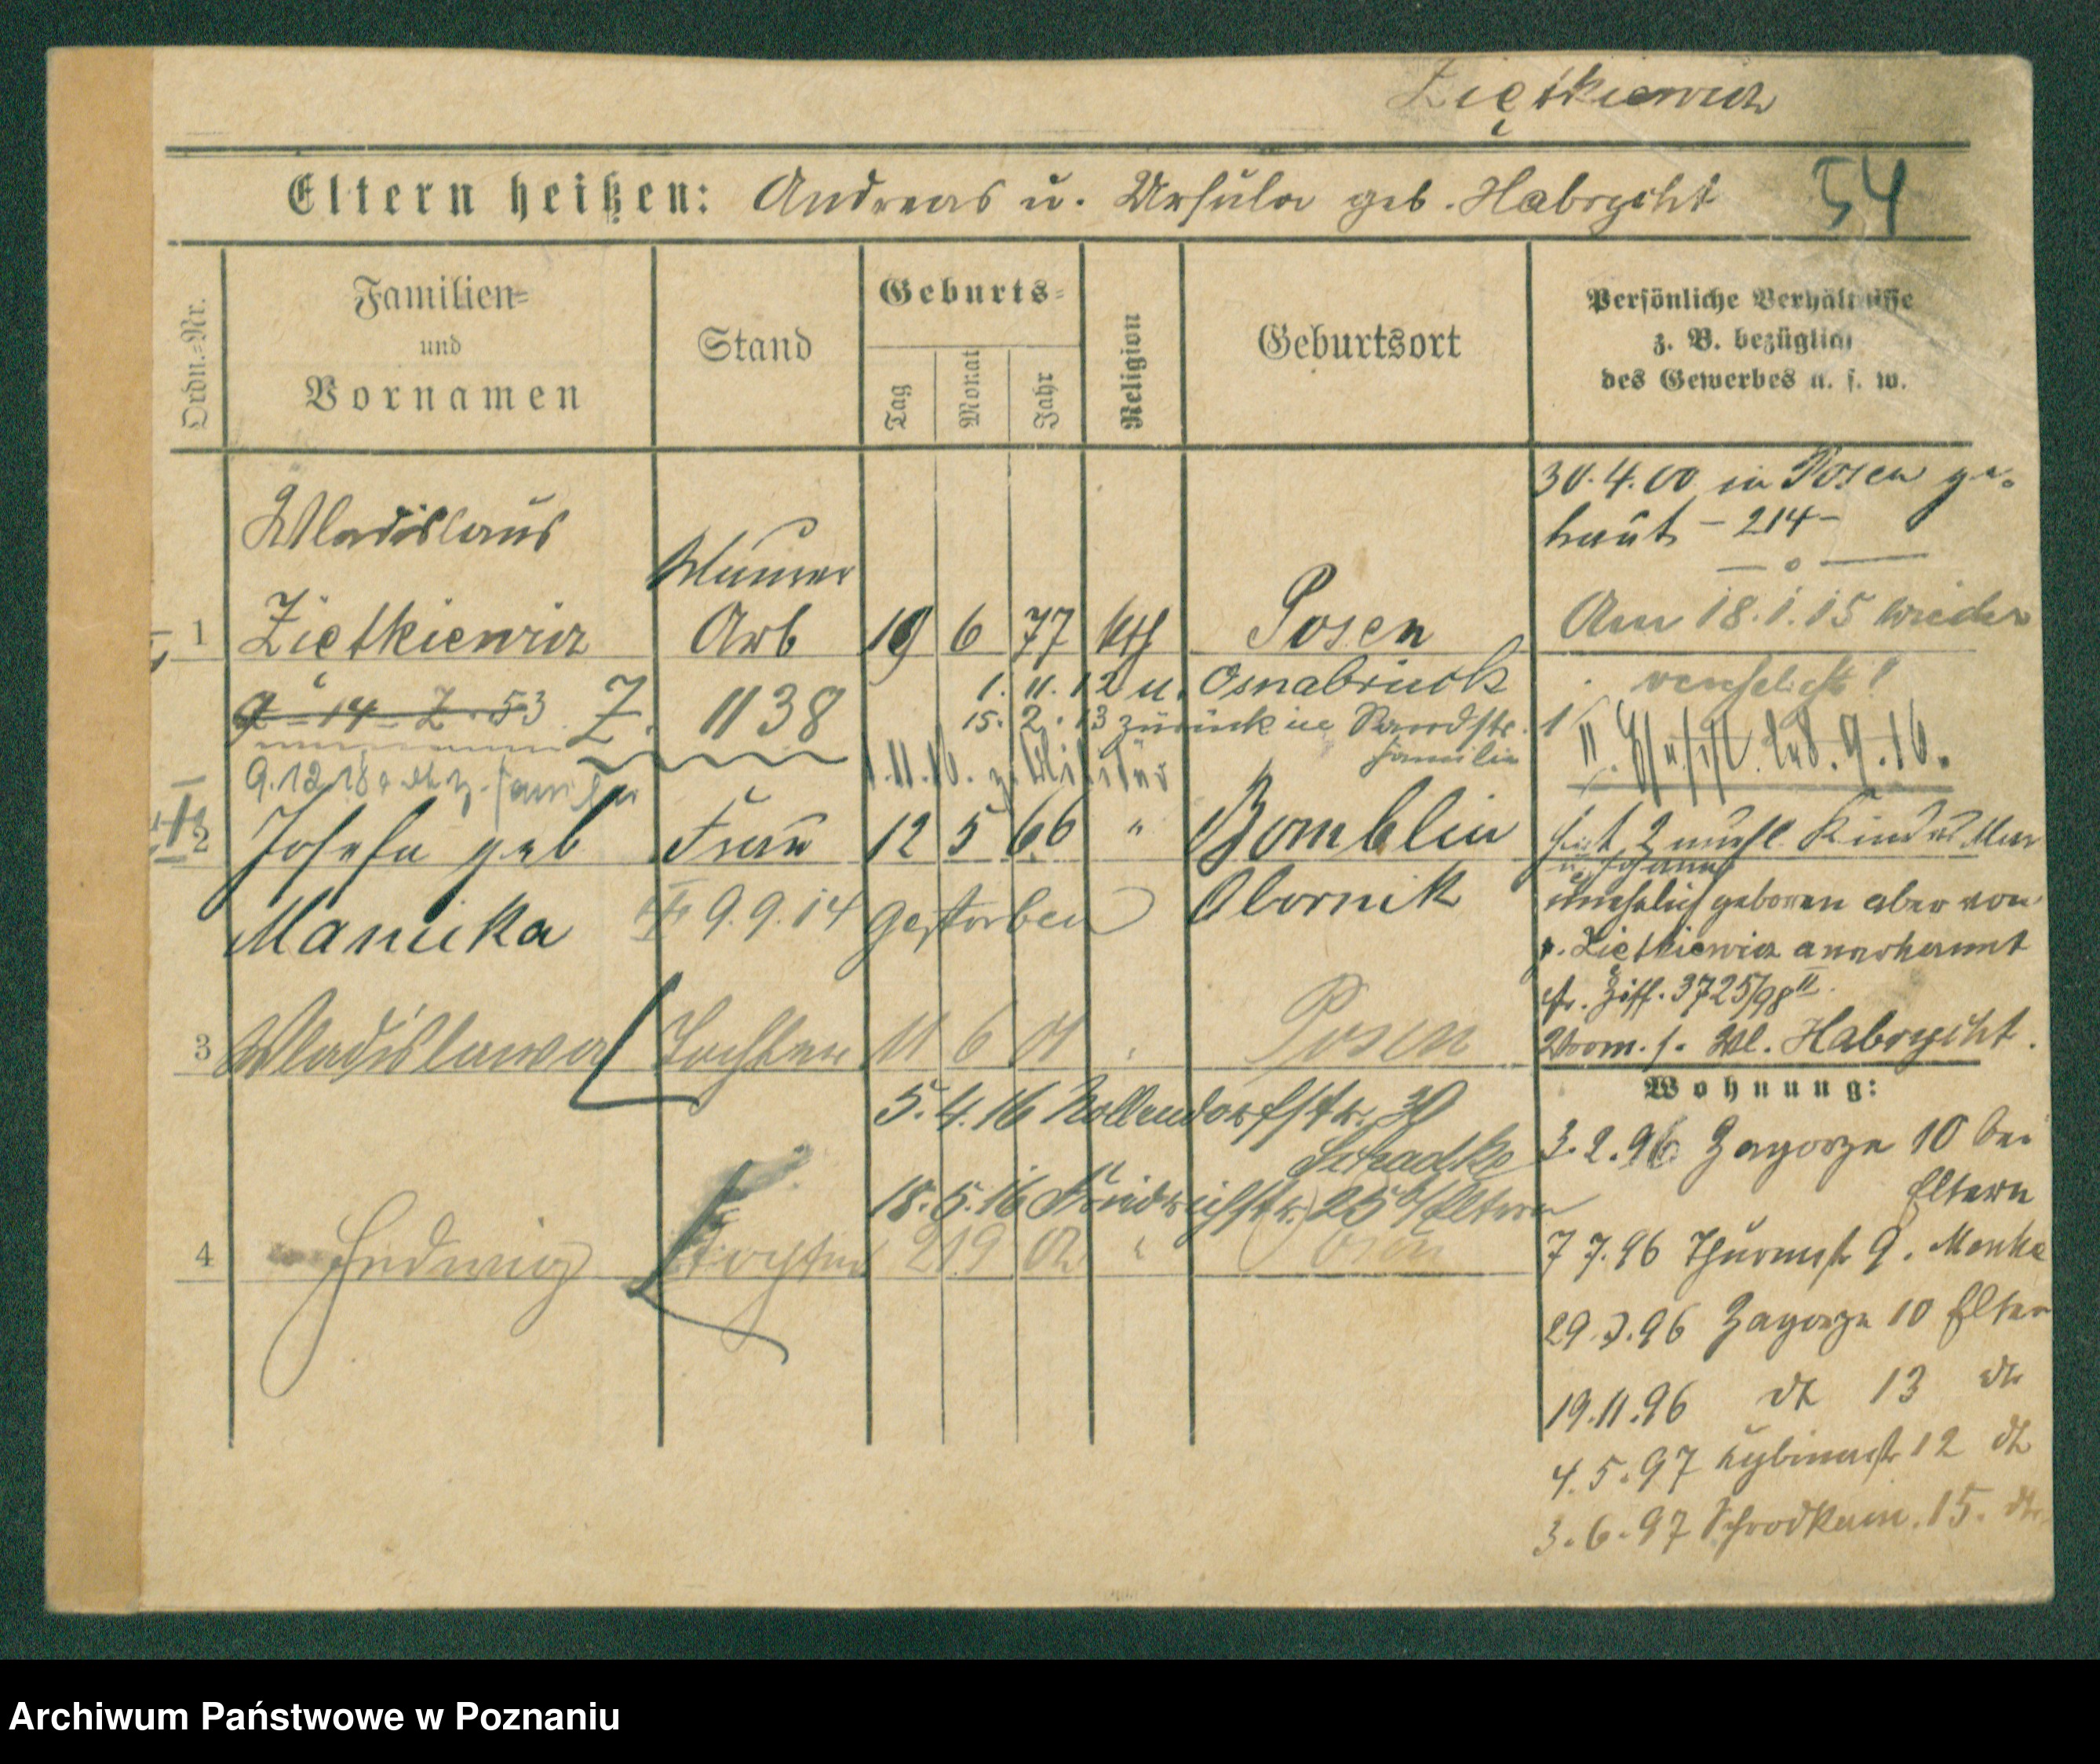 Ziętkiewicz
Eltern heißen: Andreas u. Ursula geb. Habrycht 54
Ordn.-Nr.
Familien-
und
Vornamen
Stand
Geburts-
Tag
Monat
Jahr
Religion
Geburtsort
Persönliche Verhältnisse
z. B. bezüglich
des Gewerbes u. s. w.
30.4.00 in Posen ge-
traut - 214 -
Wladislaus
Am 18.1.15 wieder
1 Ziętkiewicz Arb 19 6 77 kth Posen
verehelicht!
1.11.12 u. Osnabrück
9 14 Z. 53 Z. 1138
15.2.13 zurück
Familie
1.11.16. z. Militär
9.12.18
2 Josefa geb Frau 12 5 66 " Bomblin
hat 2 unehl. Kinder
u. Johann
Manicka 9.9.14 gestorben Obornik
unehelich geboren aber von
p. Ziętkiewicz anerkannt
3725/98 II.
3 Wladislawa Tochter 11 6 01 Posen
Vorm. f. Wl. Habrycht.
Wohnung:
5.4.16 Nollendorfstr. 30
3.2.96 Zagorze 10 bei
Eltern
18.5.16 25 b/Eltern
4 Hedwig Tochter 2 9 02 " Posen
7 7.96 Thurmstr 9.
29.7.96 Zagorze 10 Eltern
19.11.96 dt 13 dt
4.5.97 Cybinastr 12 dt
3.6.97 15. dt
Archiwum Państwowe w Poznaniu